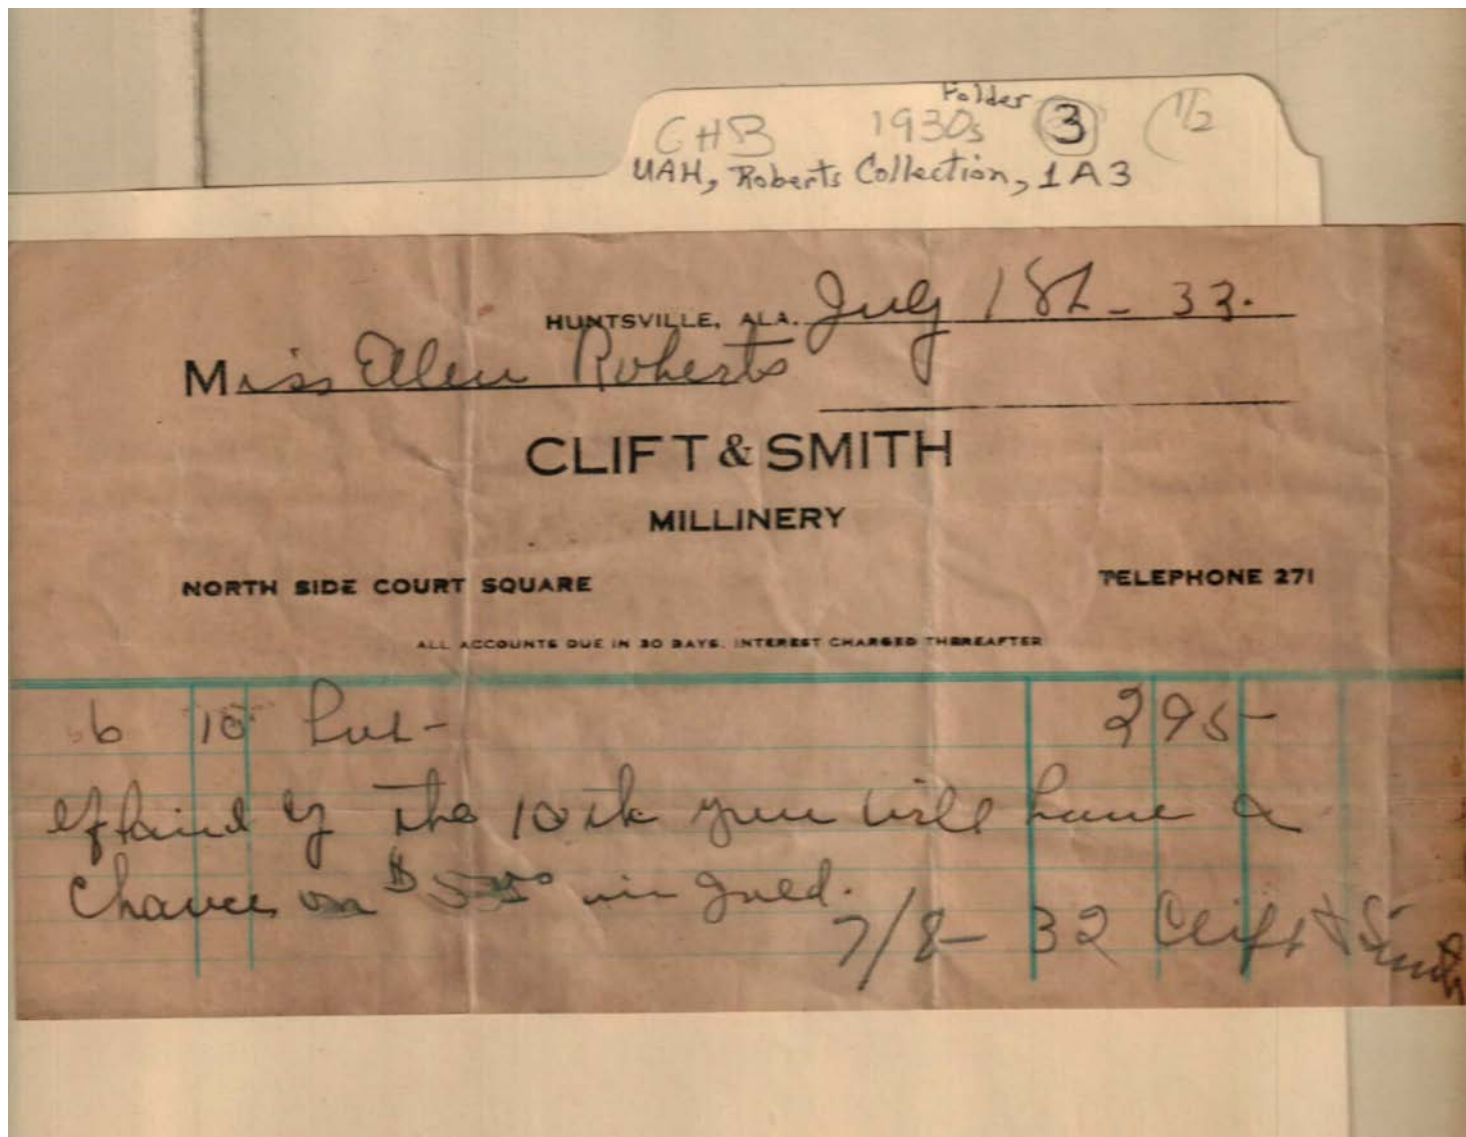 Folder
CHB 1930s 3 (1/2
UAH, Roberts Collection, 1A3
HUNTSVILLE, ALA. July 1st - 33.
Miss Ellen Roberts
CLIFT & SMITH
MILLINERY
NORTH SIDE COURT SQUARE TELEPHONE 271
ALL ACCOUNTS DUE IN 30 DAYS. INTEREST CHARGED THEREAFTER
6 10 295-
If paid by the 10th you will have a
chance on $ in gold.
7/8- 32 Clift & Smith